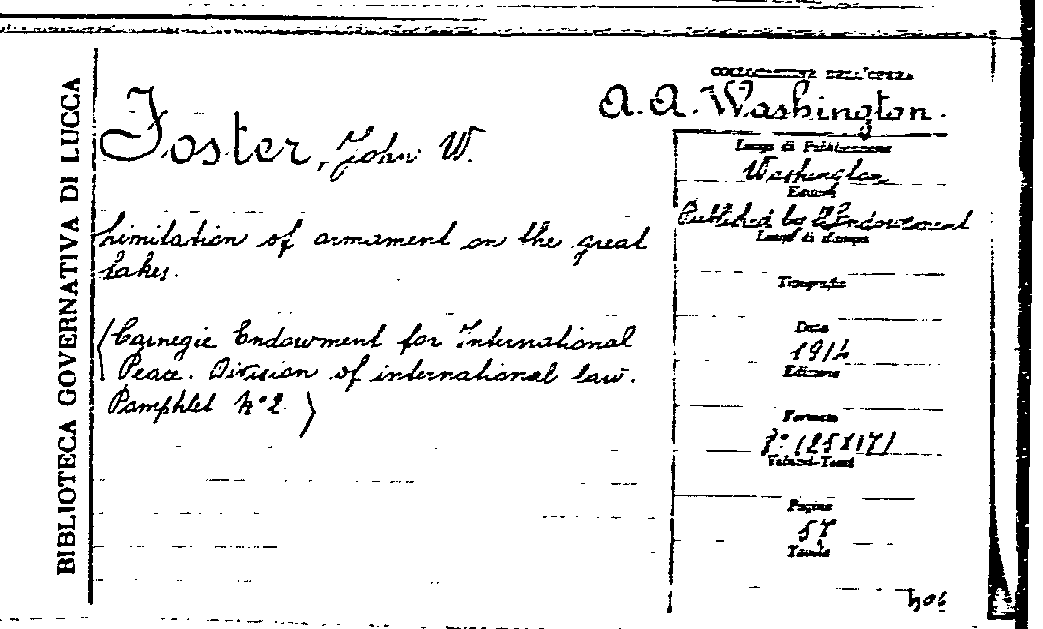 BIBLIOTECA GOVERNATIVA DI LUCCA
COLLOCAZIONE DELL'OPERA
A. A. Washington.
Foster, John W.
Limitation of armament on the great
lakes.
(Carnegie Endowment for International
Peace. Division of international law.
Pamphlet N° 2)
Luogo di Pubblicazione
Washington
Editore
Published by Endowment
Luogo di stampa
Tipografia
Data
1914
Edizione
Formato
8° (25X17)
Volumi-Tomi
Pagine
57
Tavole